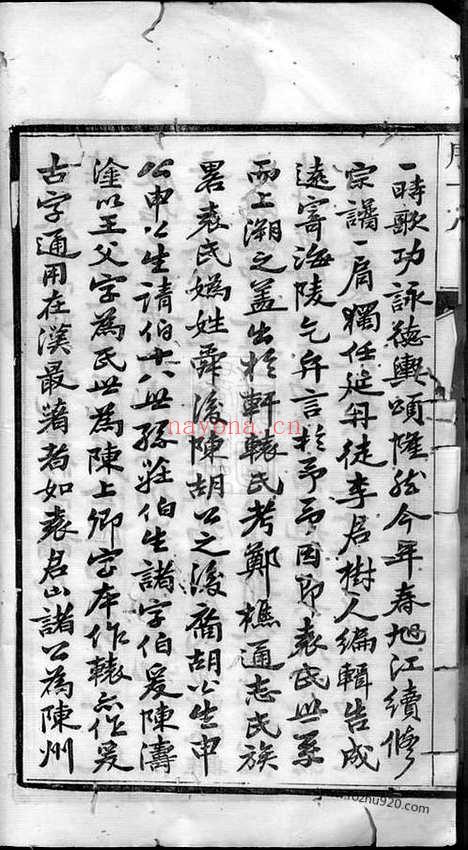 一時歌功詠德輿頌懽然今年春旭江續修
宗譜一肩獨任延丹徒李君樹人編輯告成
遠寄海陵乞弁言於予予因即袁氏世系
而上溯之蓋出於軒轅氏考鄭樵通志氏族
畧袁氏媯姓舜後陳胡公之後裔胡公生申
公申公生請伯十八世孫莊伯生諸字伯爰陳濤
塗以王父字為氏世為陳上卿字本作轅亦作爰
古字通用在漢最著者如袁君山諸公為陳州
nayona.cn
www.kongfuzhu920.com